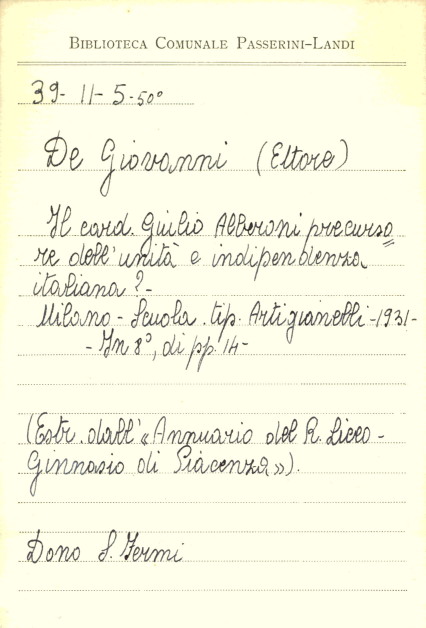 BIBLIOTECA COMUNALE PASSERINI-LANDI
39- 11- 5-50°
De Giovanni (Ettore)
Il card. Giulio Alberoni precurso=
re dell'unità e indipendenza
italiana?-
Milano - Scuola. tip. Artigianelli-1931-
- In 8°, di pp. 14-
(Estr. dall'«Annuario del R. Liceo-
Ginnasio di Piacenza»).
Dono S. Fermi